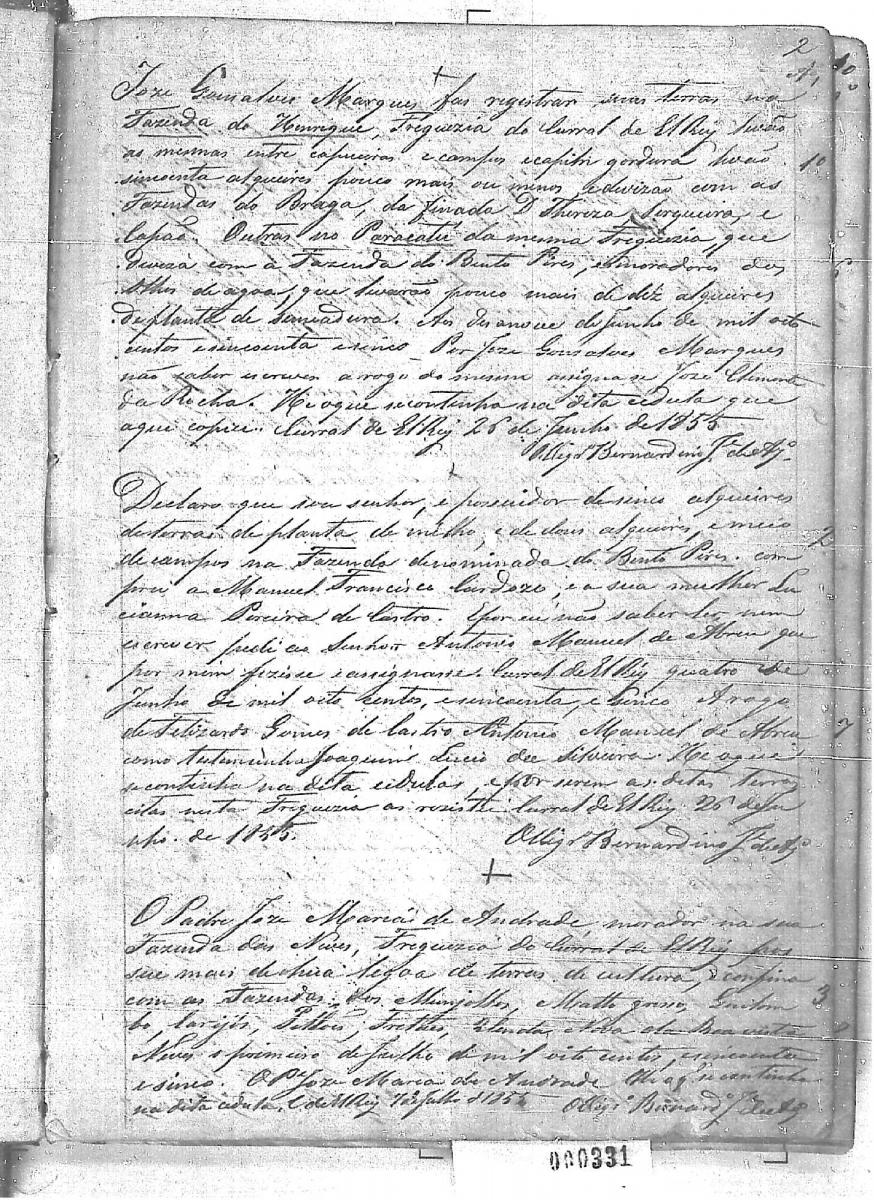 2
Joze Gonsalves Marques fas registrar suas terras na
Fazenda do Henrique, Freguezia do Curral de El Rey levão
as mesmas entre capueiras e campos e capim gordura levão
sincoenta alqueires pouco mais ou menos, e devizão com as
Fazendas do Braga, da finada D Thereza Serqueira, e
Capão. Outras no Paracatú da mesma Freguezia, que
deveza com a Fazenda do Bento Pires, e moradores dos
Olhos de agoa, que levarão pouco mais de dez alqueires
de planta de semeadura. Aos desanove de Junho de mil oito
centos e sincoenta e sinco Por Joze Gonsalves Marques
não saber escrever a rogo do mesmo assigna se Joze Clemente
da Rocha. He o que se continha na dita cedula que
aqui copiei. Curral de El Rey 26 de Junho de 1855
O Vigrº Bernardino Je de Aqº
Declaro que sou senhor, e possuidor de sinco alqueires
de terras de planta de milho, e de dous alqueires, e meio
de campos na Fazenda denominada do Bento Pires. com
prei a Manuel Francisco Cardozo, e a sua mulher Lu
cianna Pereira de Castro. E por eu não saber ler, nem
escrever pedi ao Senhor Antonio Manuel de Abreu que
por mim fizesse e assignasse. Curral de El Rey quatro de
Junho de mil oito centos, e sincoenta, e sinco A rogo
de Felizardo Gomes de Castro Antonio Manuel de Abreu
como testemunha Joaquim Lucio da Silveira. He o que
se continha na dita cedula, e por serem as ditas terras
citas nesta Freguezia as rezisttei Curral de El Rey 26 de Ju
nho. de 1855.
O Vigrº Bernardino Je de Aqº
2
7
O Padre Joze Maria de Andrade, morador na sua
Fazenda das Neves, Freguezia do Curral de El Rey pos
sue mais de hua legoa de terras de cultura, e confina
com as Fazendas dos Munjollos, Matto groso,
3
Neves o primeiro de Julho de mil oito centos, e sincoenta
e sinco. O Pe Joze Maria de Andrade He o qe se continha
na dita cedula, C de El Rey 1 de Julho d 1855 O Vigrº Bernardº Je de Aqº
000331